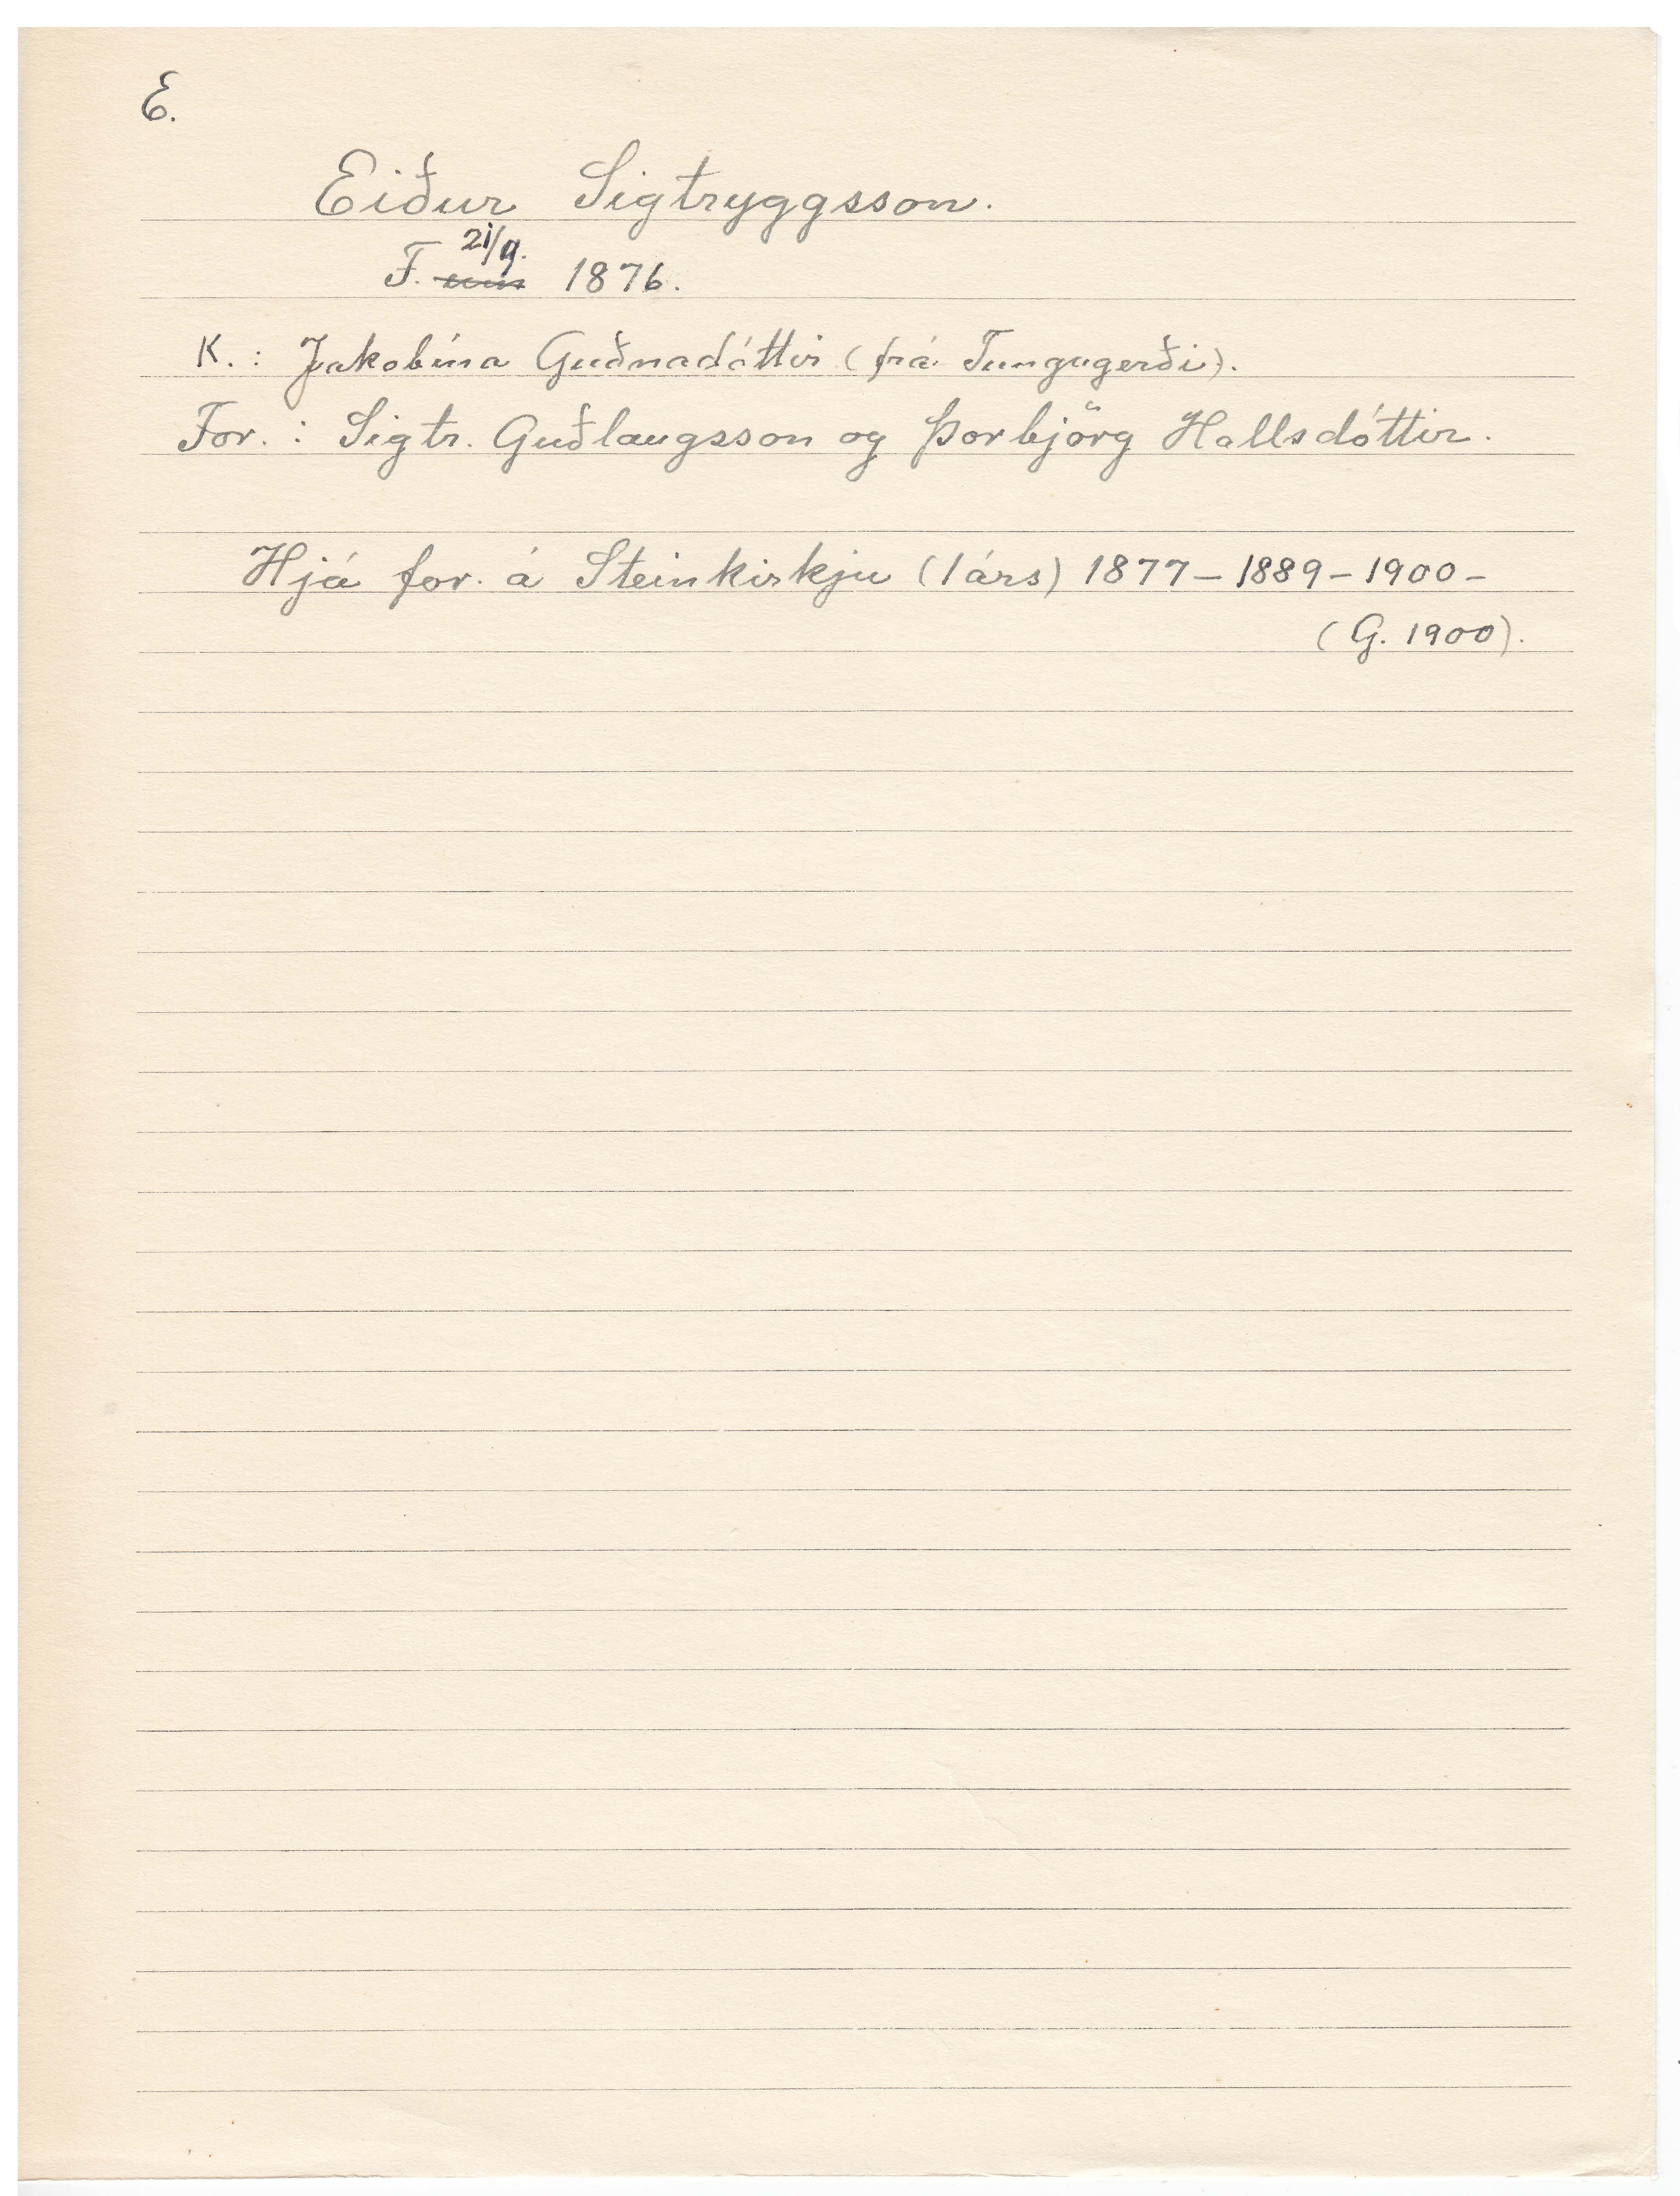 E.
Eiður Sigtryggsson.
21/9.
F. um 1876.
K.: Jakobína Guðnadóttir (frá Tungugerði).
For.: Sigtr. Guðlaugsson og Þorbjörg Hallsdóttir.
Hjá for. á Steinkirkju (1árs) 1877-1889-1900-
(G. 1900).